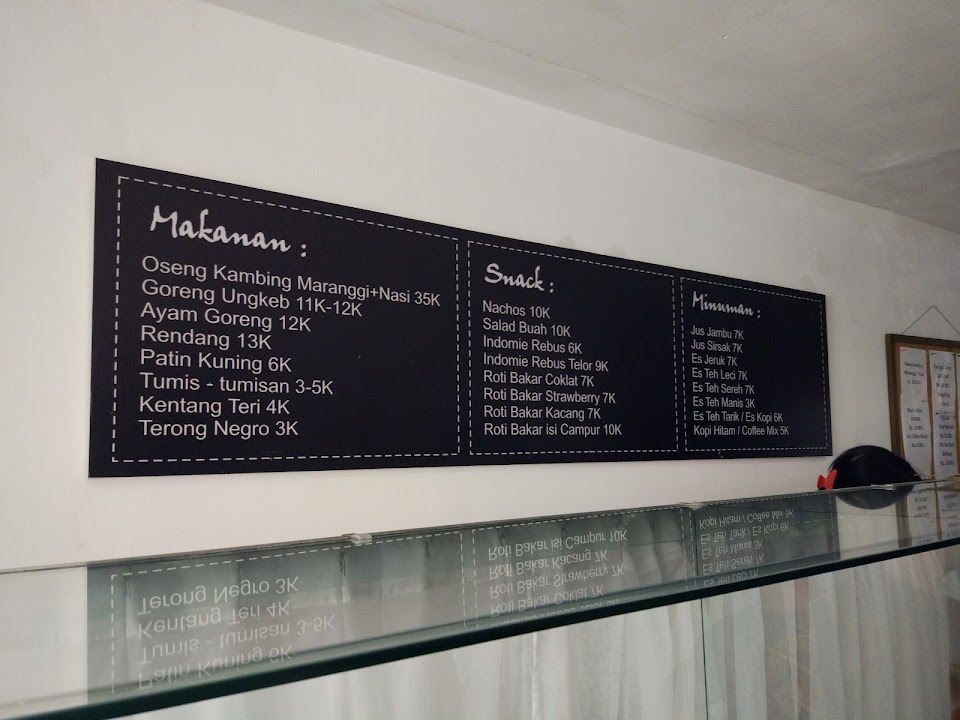 Makanan :
Oseng Kambing Maranggi+Nasi 35K
Goreng Ungkeb 11K-12K
Ayam Goreng 12K
Rendang 13K
Patin Kuning 6K
Tumis - tumisan 3-5K
Kentang Teri 4K
Terong Negro 3K
Snack :
Nachos 10K
Salad Buah 10K
Indomie Rebus 6K
Indomie Rebus Telor 9K
Roti Bakar Coklat 7K
Roti Bakar Strawberry 7K
Roti Bakar Kacang 7K
Roti Bakar isi Campur 10K
Minuman :
Jus Jambu 7K
Jus Sirsak 7K
Es Jeruk 7K
Es Teh Leci 7K
Es Teh Sereh 7K
Es Teh Manis 3K
Es Teh Tarik / Es Kopi 6K
Kopi Hitam / Coffee Mix 5K